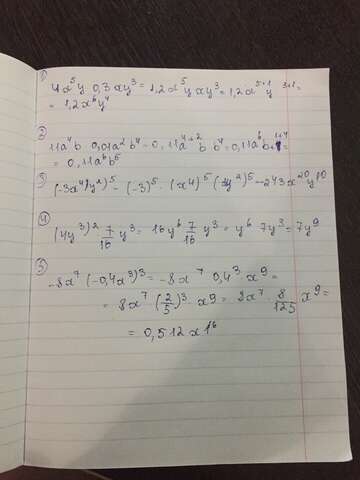 ① 4x⁵y 0,3xy³ = 1,2x⁵yxy³ = 1,2x⁵⁺¹y³⁺¹=
= 1,2x⁶y⁴
② 11a⁴b 0,01a²b⁴ - 0,11a⁴⁺²b b⁴ = 0,11a⁶b¹⁺⁴=
= 0,11a⁶b⁵
③ (-3x⁴y²)⁵ - (-3)⁵ · (x⁴)⁵ (y²)⁵ - 243x²⁰y¹⁰
④ (4y³)² 7/16 y³ = 16y⁶ 7/16 y³ = y⁶ 7y³ = 7y⁹
⑤ -8x⁷ (-0,4x³)³ = -8x⁷ 0,4³ x⁹ =
= 8x⁷ · (2/5)³ x⁹ = 8x⁷ · 8/125 x⁹ =
= 0,512x¹⁶